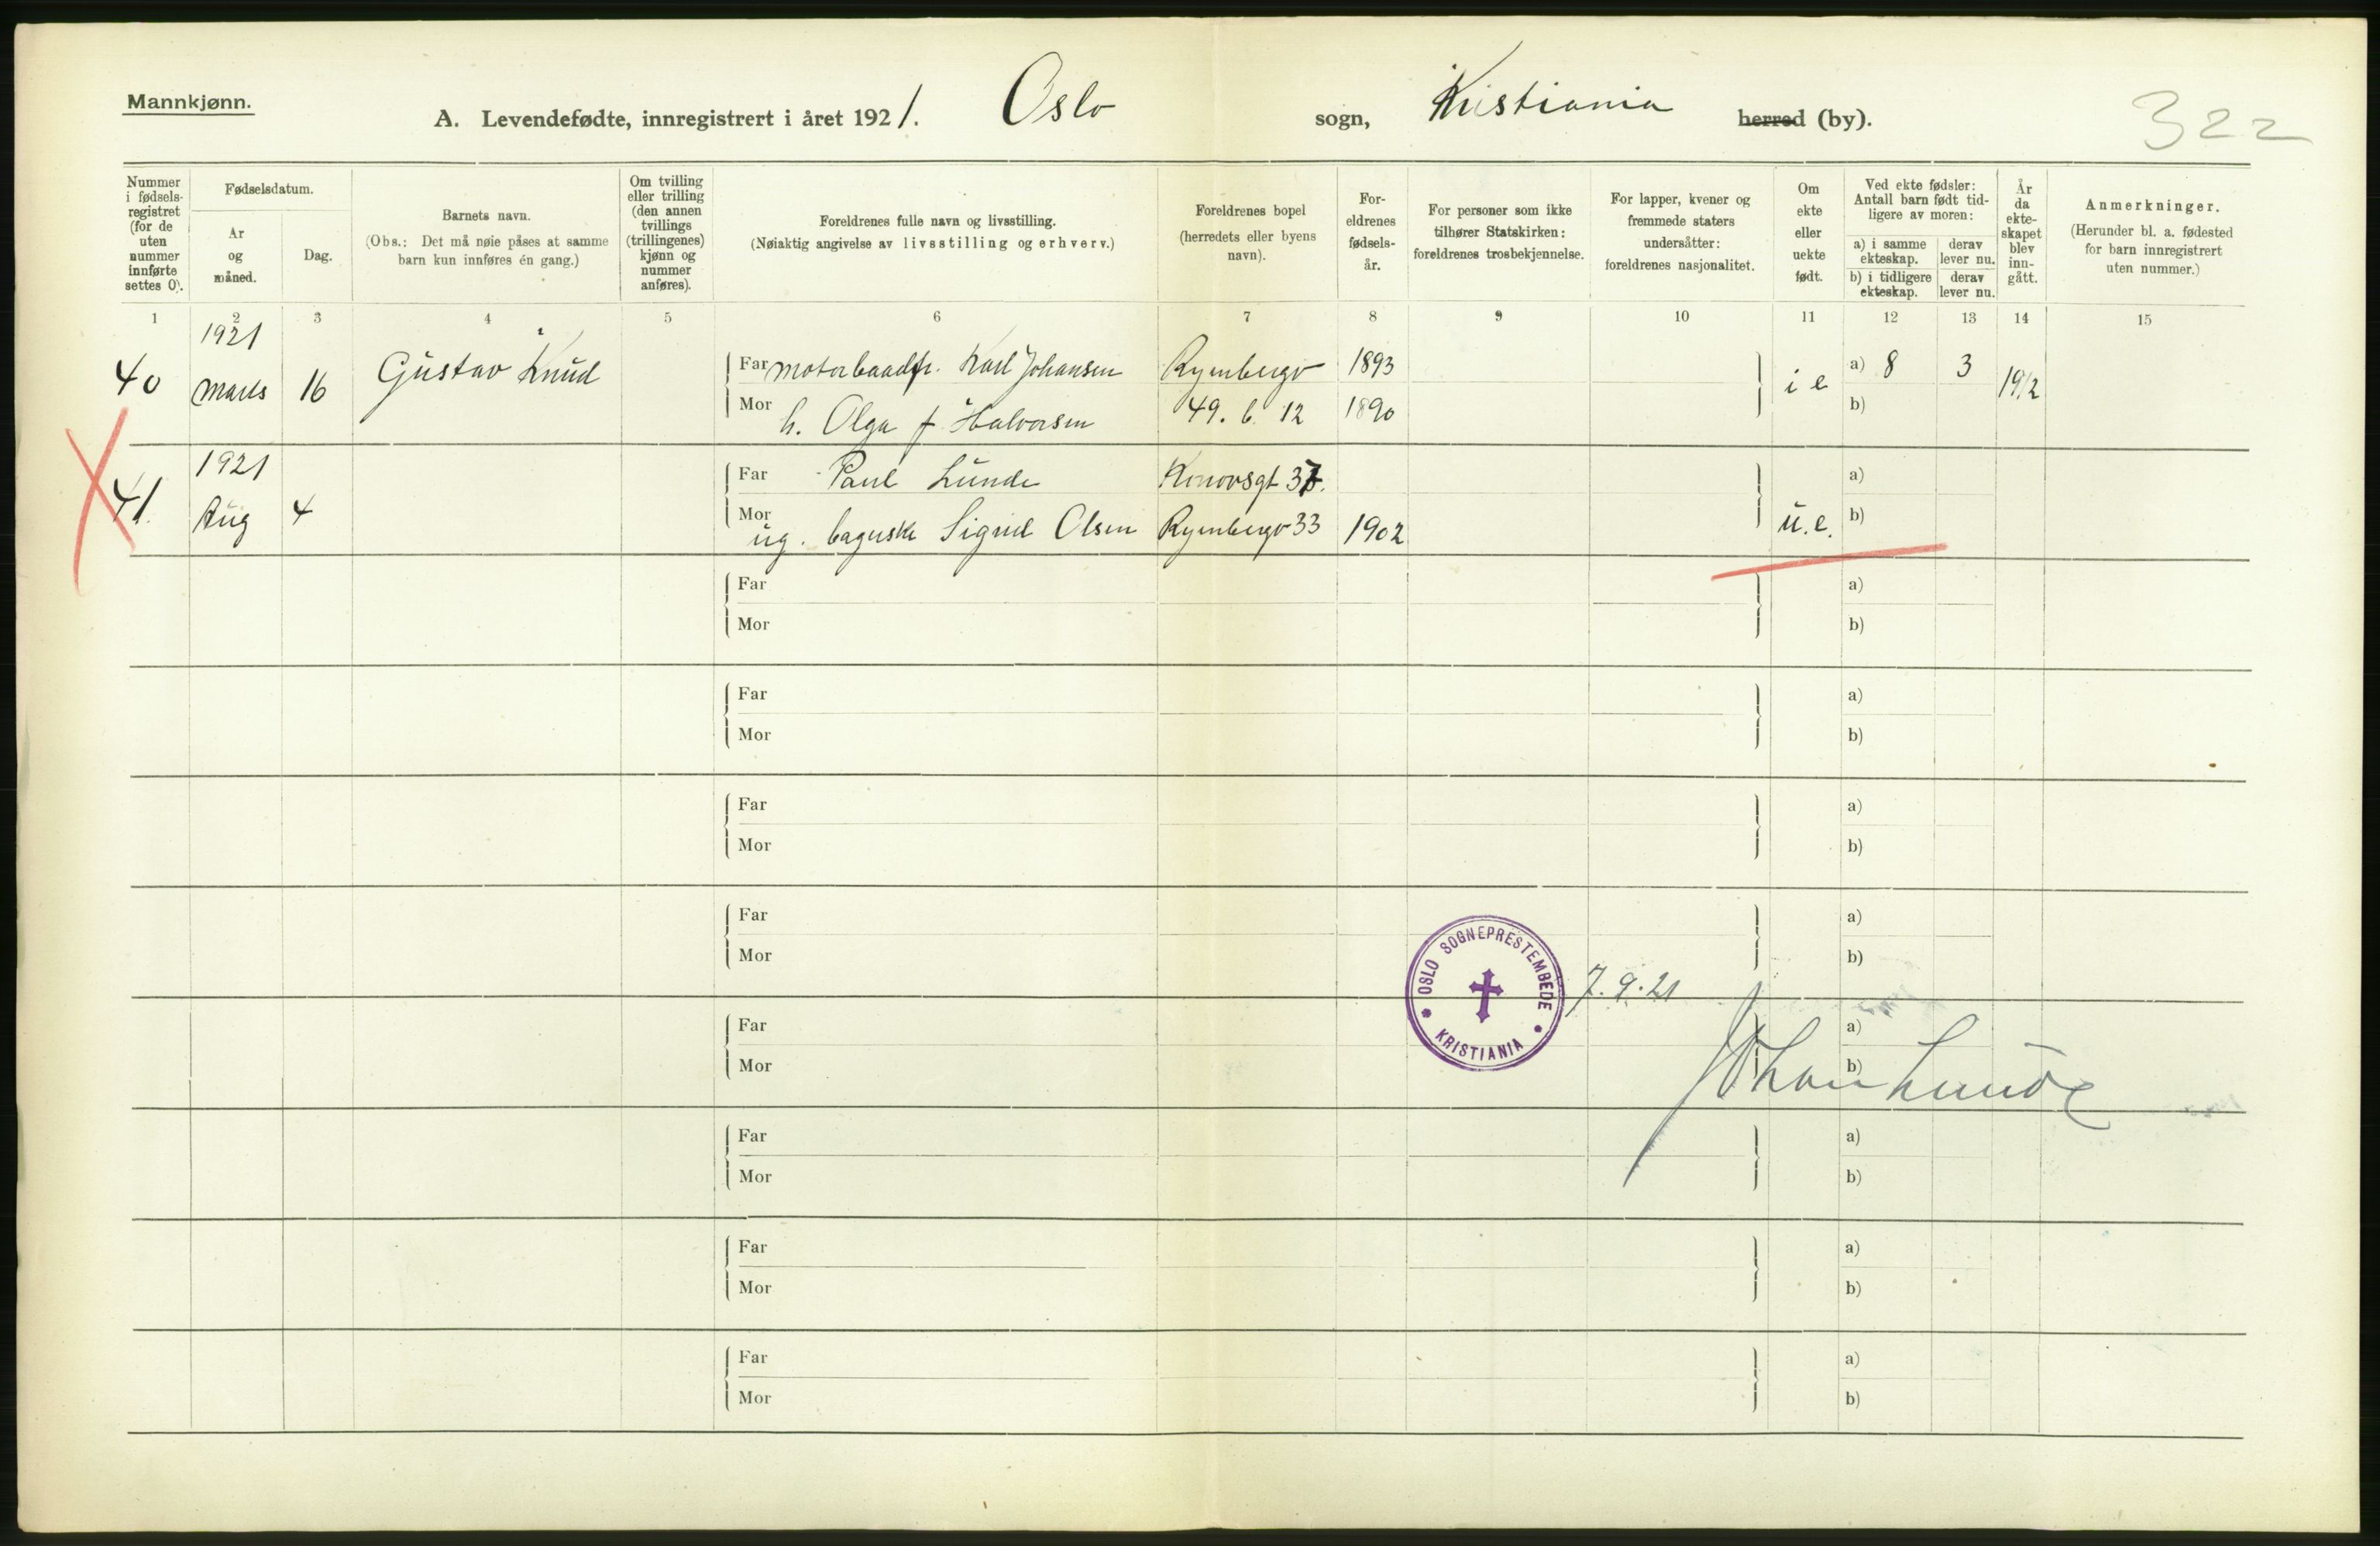 Mannkjønn.
A. Levendefødte, innregistrert i året 1921. Oslo sogn, Kristiania herred (by).
322
Nummer i fødsels-registret (for de uten nummer innførte settes 0).
Fødselsdatum.
År og måned.
Dag.
Barnets navn.
(Obs.: Det må nøie påses at samme barn kun innføres én gang.)
Om tvilling eller trilling (den annen tvillings (trillingenes) kjønn og nummer anføres).
Foreldrenes fulle navn og livsstilling.
(Nøiaktig angivelse av livsstilling og erhverv.)
Foreldrenes bopel (herredets eller byens navn).
For-eldrenes fødsels-år.
For personer som ikke tilhører Statskirken: foreldrenes trosbekjennelse.
For lapper, kvener og fremmede staters undersåtter: foreldrenes nasjonalitet.
Om ekte eller uekte født.
Ved ekte fødsler: Antall barn født tid-ligere av moren:
a) i samme ekteskap.
derav lever nu.
b) i tidligere ekteskap.
derav lever nu.
År da ekte-skapet blev inn-gått.
Anmerkninger.
(Herunder bl. a. fødested for barn innregistrert uten nummer.)
1 2 3 4 5 6 7 8 9 10 11 12 13 14 15
1921
40 Marts 16 Gustav Knud Far motorbaadfr. Karl Johansen Rymbergv 1893 i e a) 8 3 1912
Mor h. Olga f. Halvorsen 49. b. 12 1890 b)
1921
41. Aug 4 Far Paul Lunde Konowsgt 37. a)
Mor ug. Sigrid Olsen Rymbergv 33 1902 u.e. b)
Far a)
Mor b)
Far a)
Mor b)
Far a)
Mor b)
Far a)
Mor b)
OSLO SOGNEPRESTEMBEDE
KRISTIANIA
7.9.21
Far a)
Mor b)
Johan Lunde
Far a)
Mor b)
Far a)
Mor b)
Far a)
Mor b)